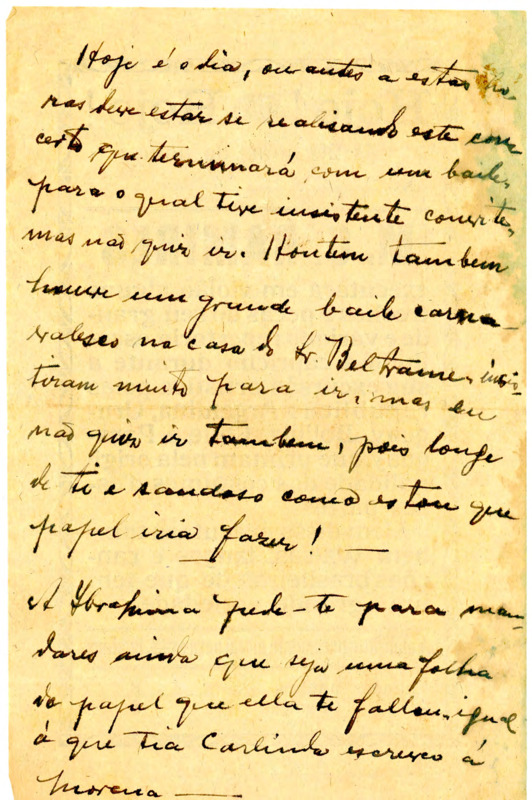 Hoje é o dia, ou antes a estas ho
ras deve estar se realisando este con
certo que terminará com um baile,
para o qual tive insistente convite,
mas não quiz ir. Hontem tambem
houve um grande baile carna-
valesco na casa do Sr. Beltrame, insis-
tiram muito para ir, mas eu
não quiz ir tambem, pois longe
de ti e saudoso como estou que
papel iria fazer! —
A Ybrahima pede-te para man-
dares ainda que seja uma folha
do papel que ella te fallou, igual
á que tia Carlinda escreveo á
Morena —